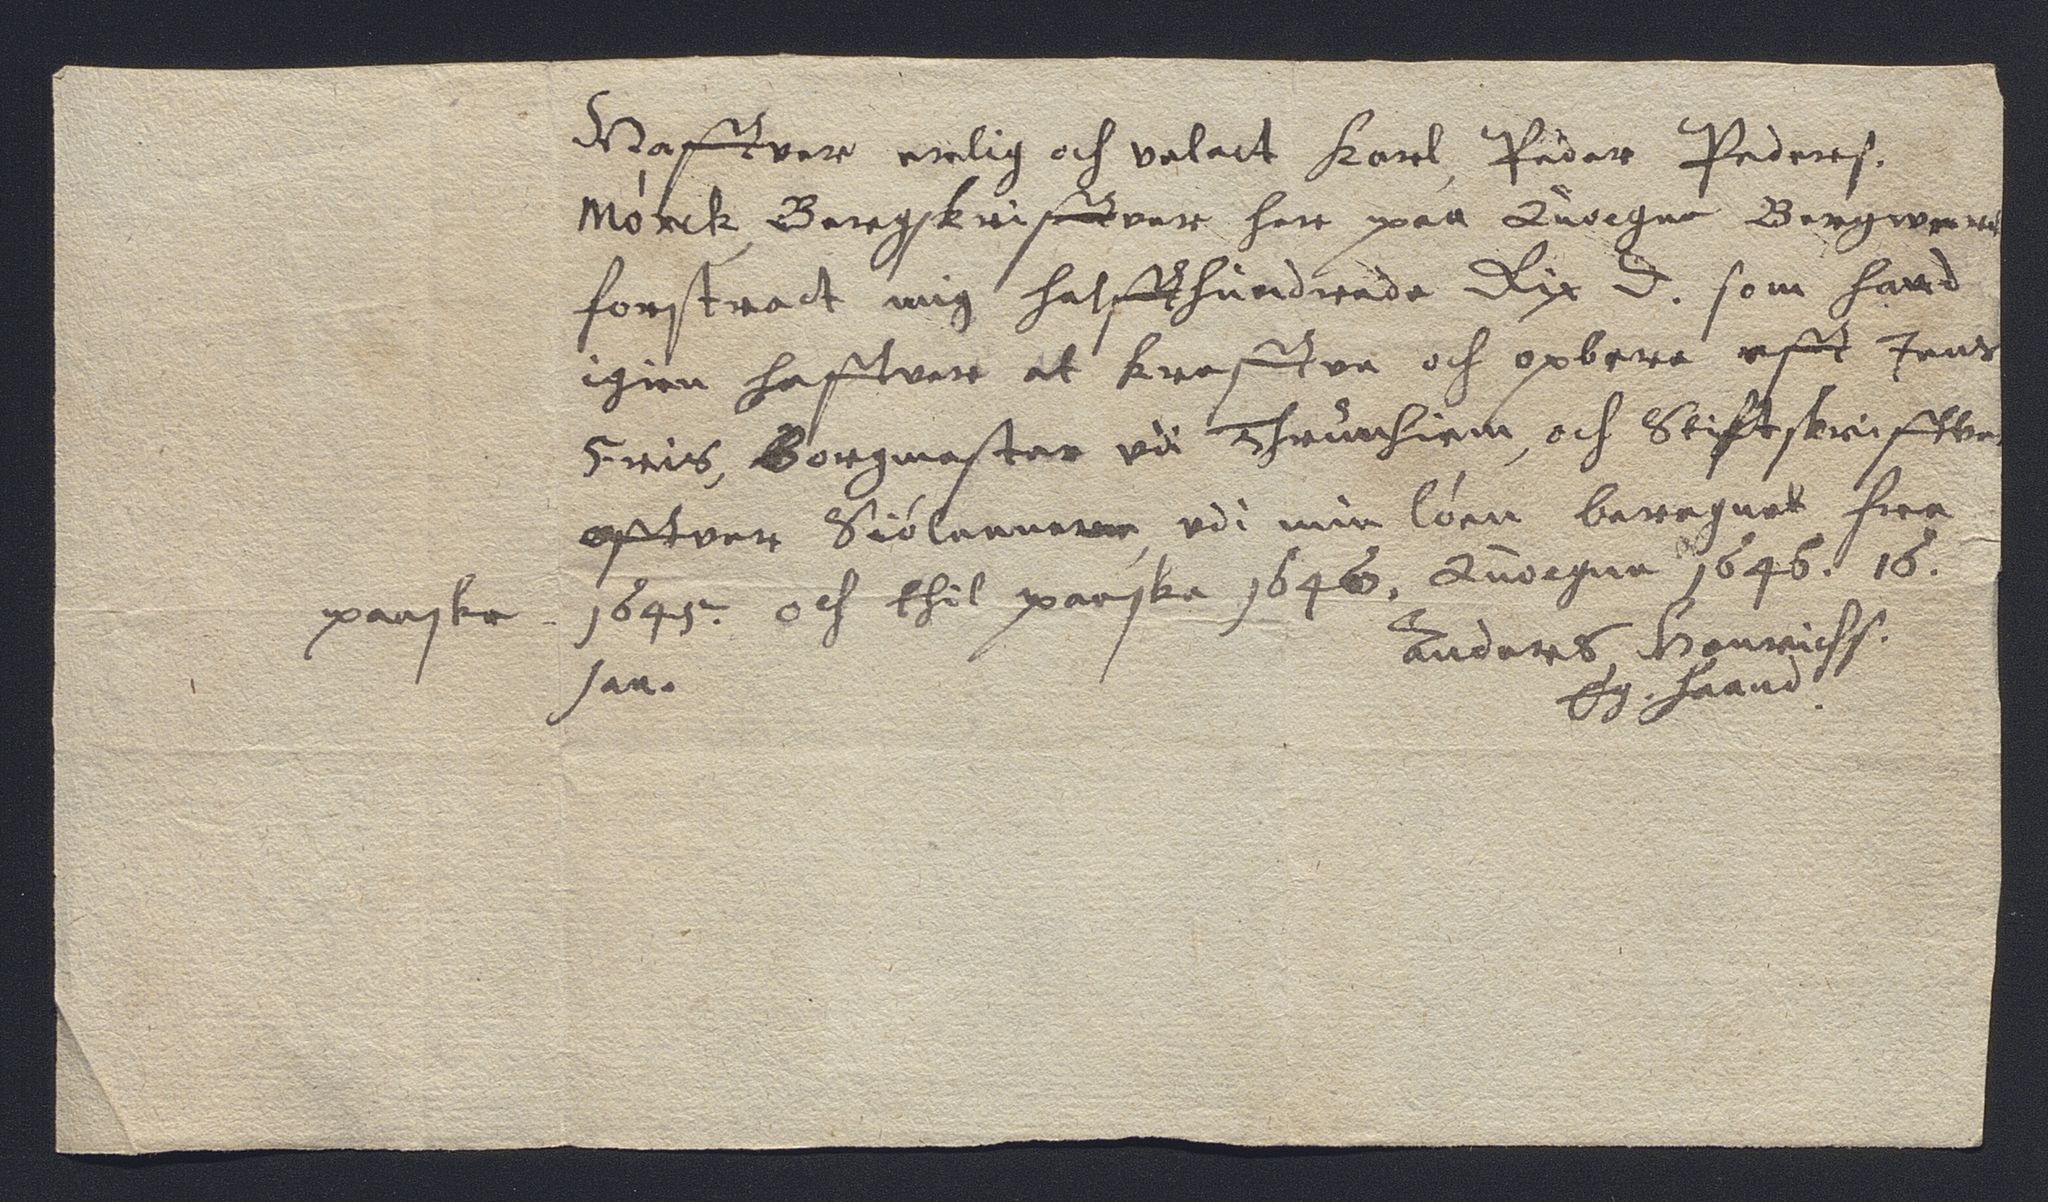 Hafftver erelig och velact Karl Peder Peders.
Mórck, Bergskrifftver her paa Quoegne Bergwerck
forstract mig halffthundrede Rix D. som hand
igien hafftver at krefftve och opbere efft Jens
Friis, Borgmester vdi Thrundhiem, och Stiftskrifftver
offtver Siólennerne, vdi min lóen beregnet fra
paaske 1645. och thil paaske 1646. Quoegne 1646. 16.
Jan.
Anders Henrichs.
Eg. haand.